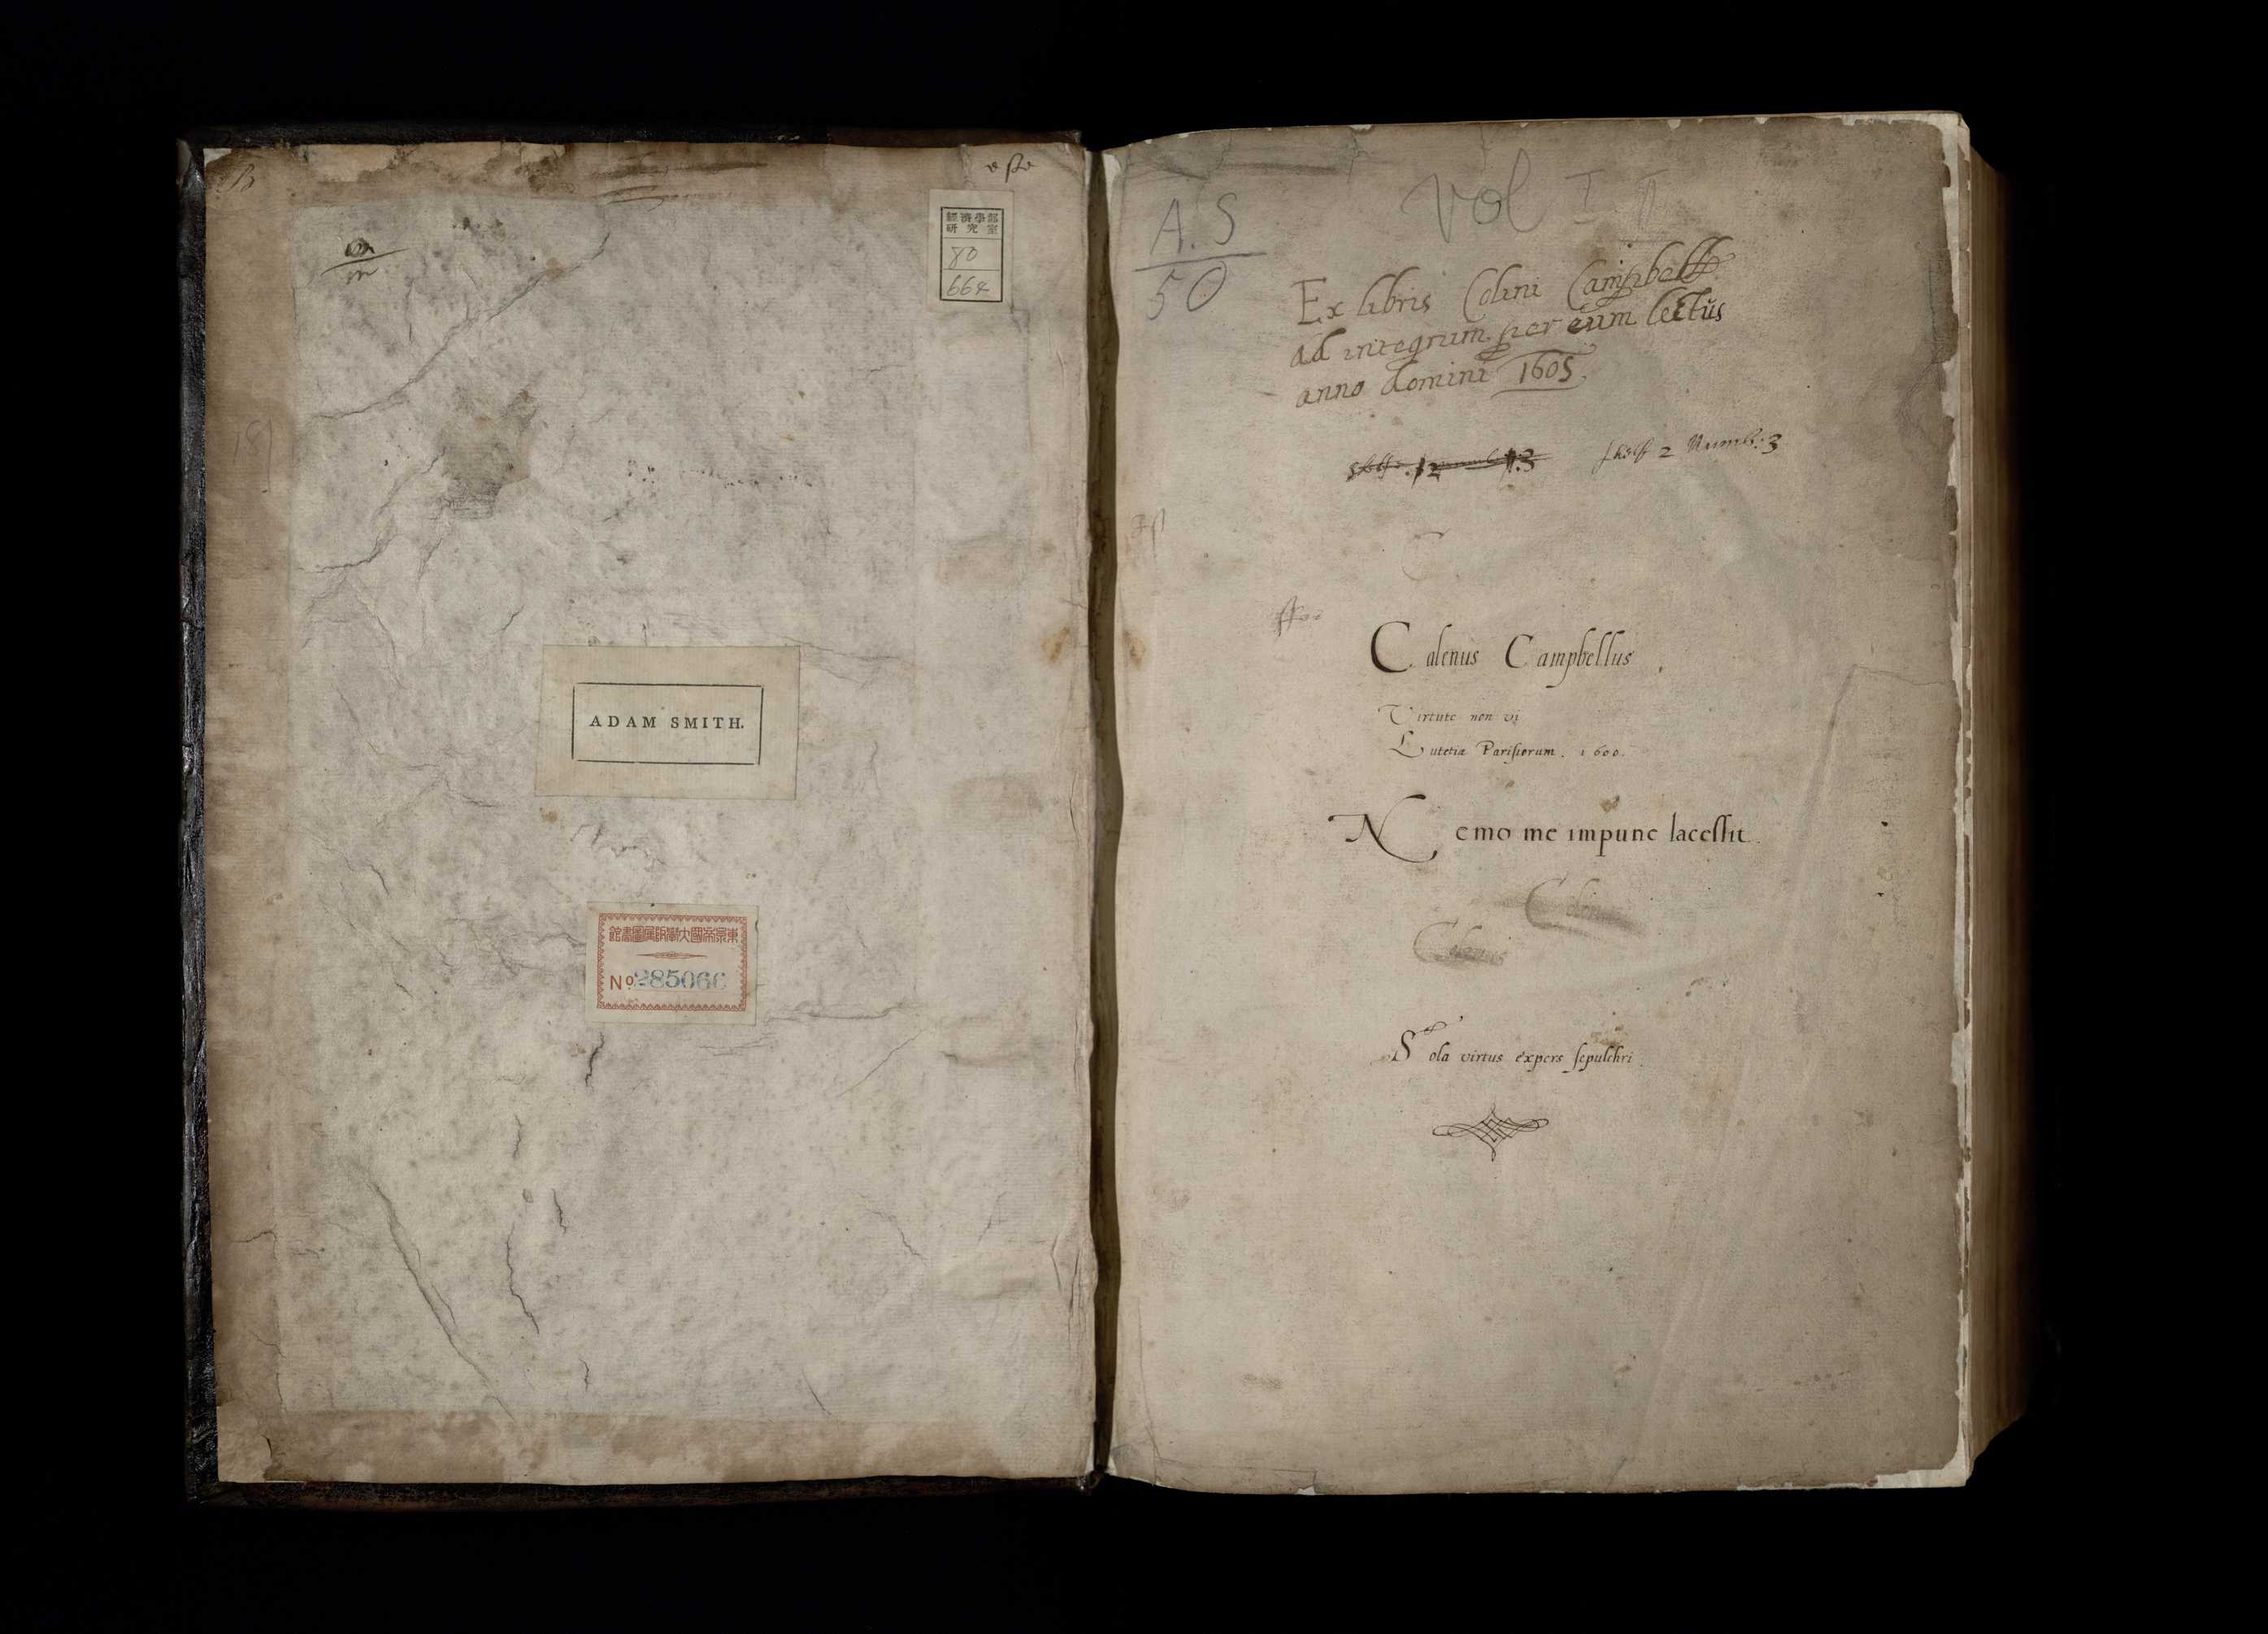 經濟學部
研究室
80
664
ADAM SMITH.
東京帝國大學附屬圖書館
No 285066
A. S
50
Vol I II
Ex libris Colini Campbell
ad integrum per eum lectus
anno domini 1605.
shelf 2 Numb: 3
Colenus Campbellus
Virtute non vi
Lutetia Parisiorum. 1600.
Nemo me impune lacessit
Colin
Colenus
Sola virtus expers sepulchri.